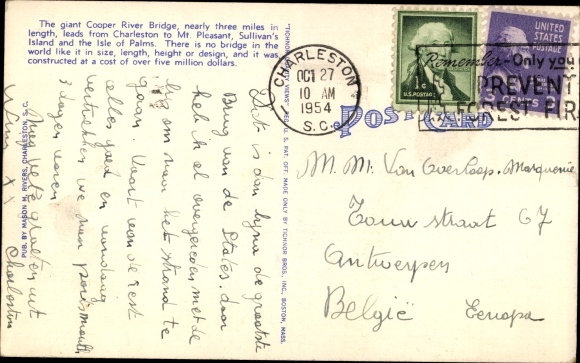 The giant Cooper River Bridge, nearly three miles in
length, leads from Charleston to Mt. Pleasant, Sullivan's
Island and the Isle of Palms. There is no bridge in the
world like it in size, length, height or design, and it was
constructed at a cost of over five million dollars.
CHARLESTON
OCT 27
10 AM
1954
S.C.
UNITED
STATES
POSTAGE
1¢
U.S. POSTAGE
Remember - Only you
PREVENT
FOREST FIR
POST CARD
Dit is dan bijna de grootste
Brug van de States. door
heb ik al overgereden met de
om naar het strand te
gaan. Voort van de rest
alles goed en vandaag
vertrekken we naar portsmouth
3 dagen varen
Nog vele groeten uit
Charleston
x x
M. Mr. Van Overloop. Marquenie
straat 67
Antwerpen
België Europa
PUB. BY MASON M. RIVERS, CHARLESTON, S. C.
MADE ONLY BY TICHNOR BROS., INC., BOSTON, MASS.